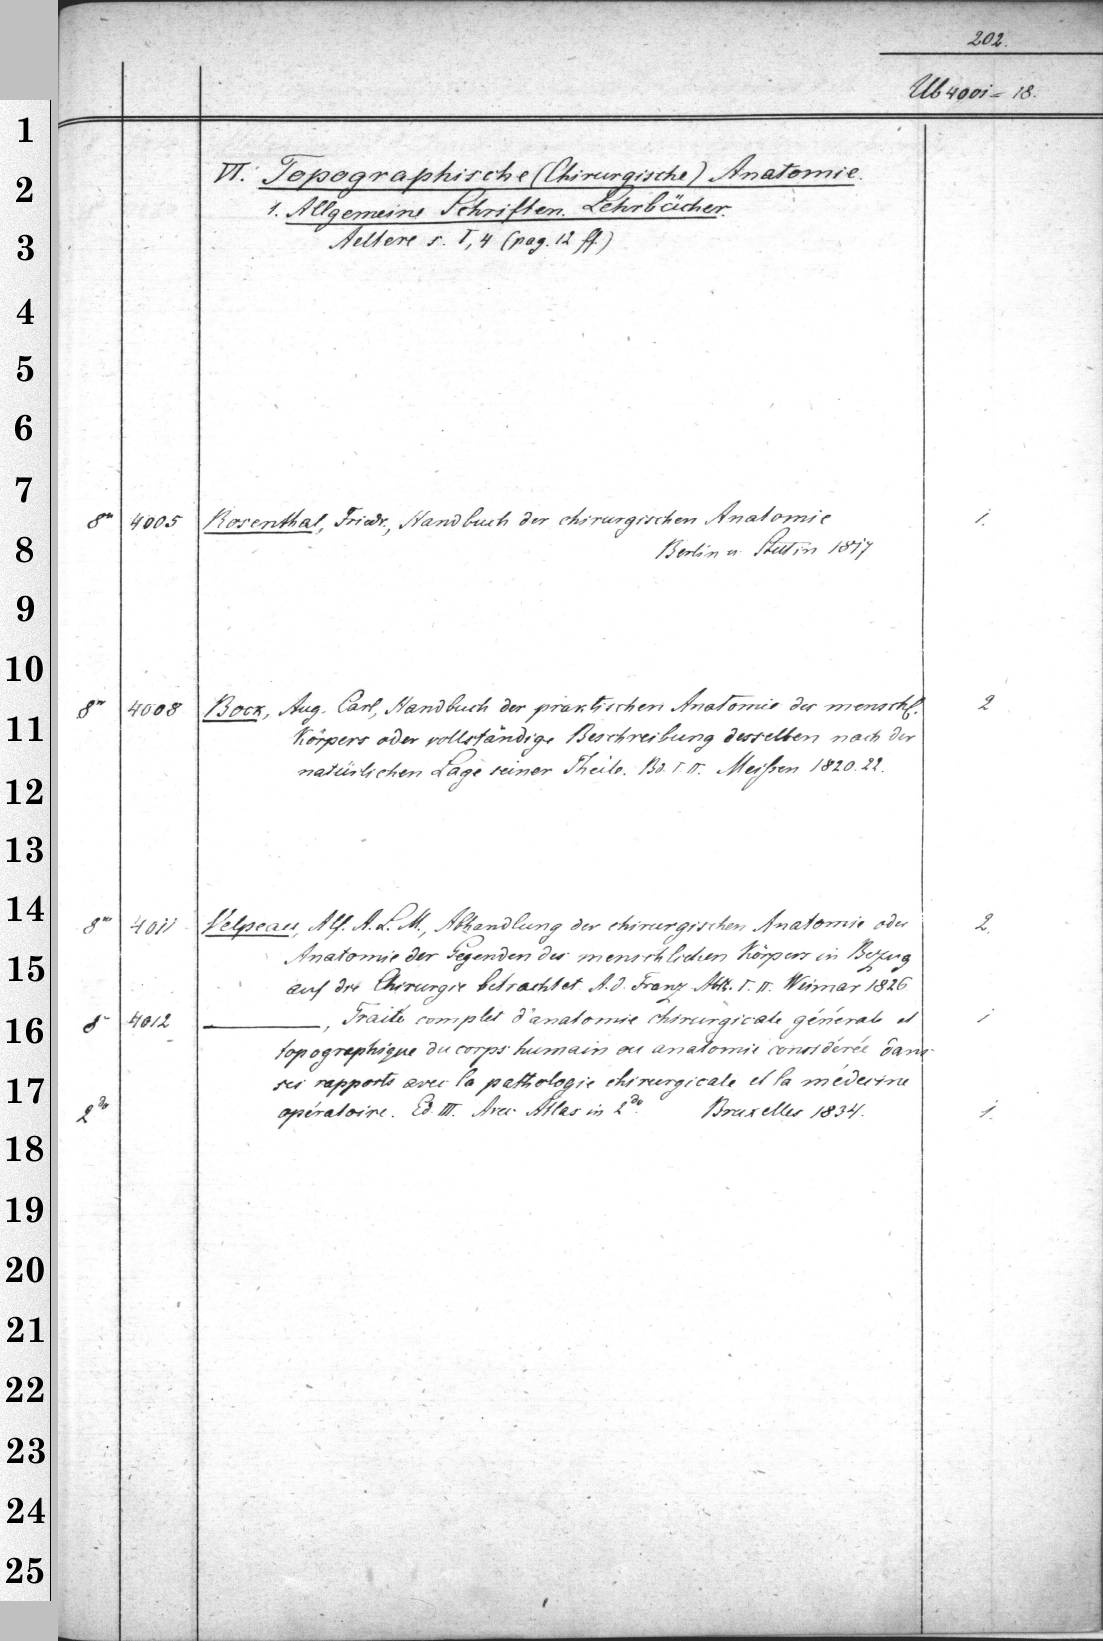 202.
Ub 4001-18.
VI. Topographische (Chirurgische) Anatomie.
1. Allgemeine Schriften. Lehrbücher.
Aeltere s. I, 4 (pag. 12 ff.)
8vo 4005 Rosenthal, Friedr., Handbuch der chirurgischen Anatomie 1.
Berlin u. Stettin 1817
8vo 4008 Bock, Aug. Carl, Handbuch der praktischen Anatomie des menschl. 2
Körpers oder vollständige Beschreibung desselben nach der
natürlichen Lage seiner Theile. Bd. I. II. Meißen 1820. 22.
8vo 4011 Velpeau, Alf. A. L. M., Abhandlung der chirurgischen Anatomie oder 2.
Anatomie der Gegenden des menschlichen Körpers in Bezug
auf die Chirurgie betrachtet. A. d. Franz. Abth. I. II. Weimar 1826
8- 4012 ———, Traité complet d'anatomie chirurgicale générale et 1
topographique du corps humain ou anatomie considérée dans
ses rapports avec la pathologie chirurgicale et la médecine
2do opératoire. Ed. III. Avec Atlas in 2do. Bruxelles 1834. 1.
1
2
3
4
5
6
7
8
9
10
11
12
13
14
15
16
17
18
19
20
21
22
23
24
25